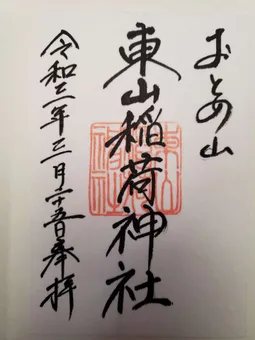 おとめ山
東山稲荷神社
令和三年三月二十五日奉拝